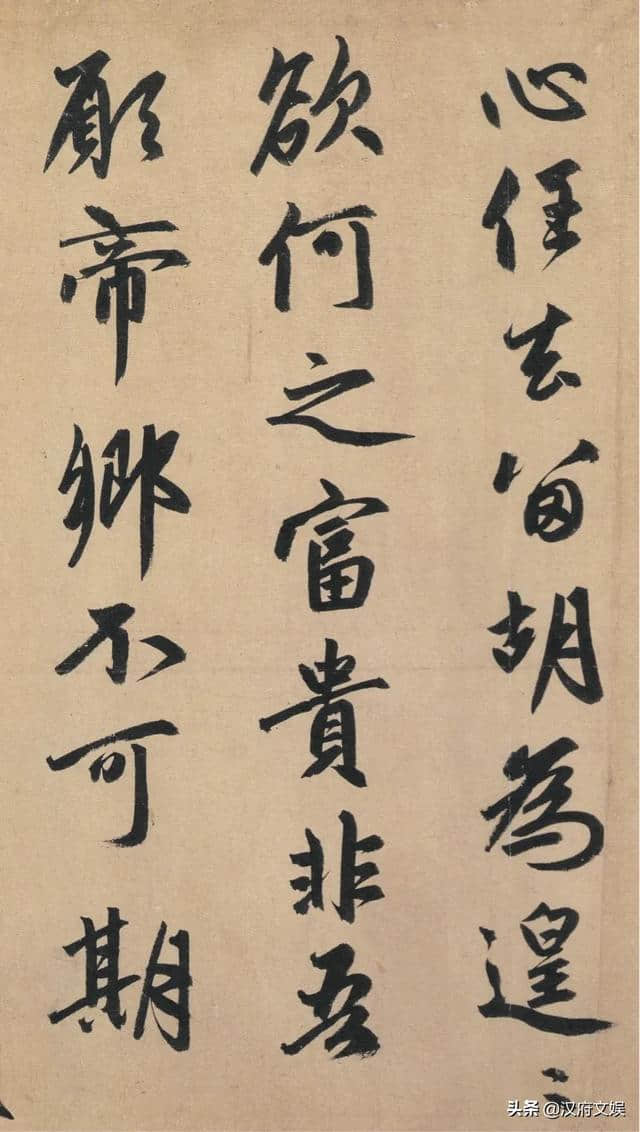 心任去留胡為遑〻
欲何之富貴非吾
願帝鄉不可期
头条 @汉府文娱